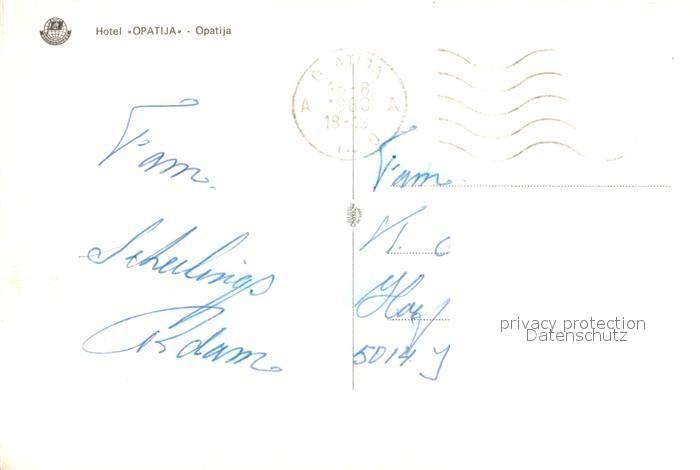 Hotel «OPATIJA» - Opatija
OPATIJA
16-8
A 1980 A
18-19
Fam.
Scheelings
R'dam.
Fam.
5014
privacy protection
Datenschutz